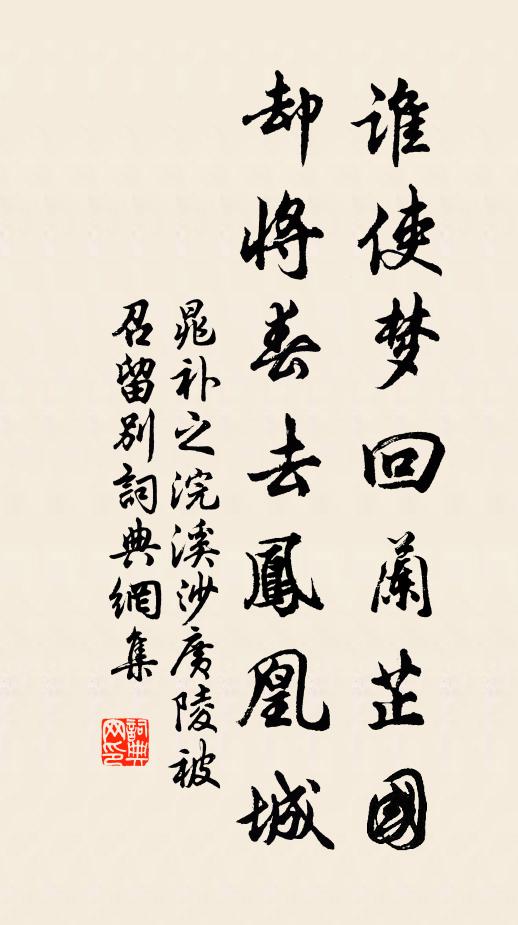 谁使梦回蘭芷國
却将春去鳳凰城
晁补之浣溪沙廣陵被
召留别詞典網集
詞典
网印